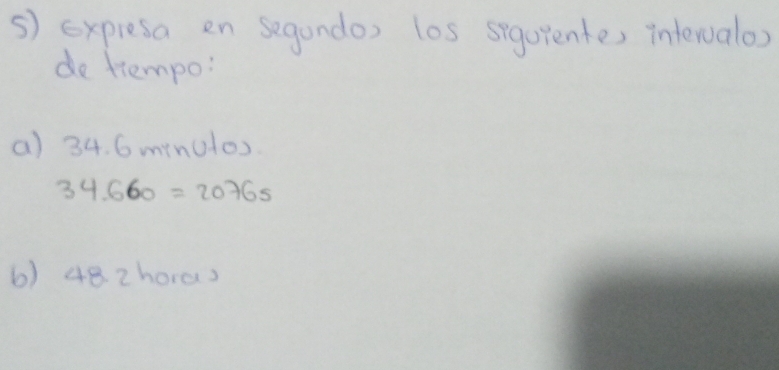 5) Expresa en segundos los siguientes intervalos
de tiempo:
a) 34.6 minutos.
34.660 = 2076s
b) 48.2 horas